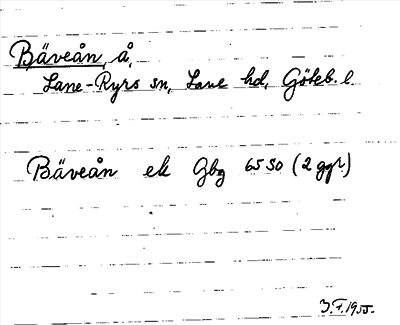 Bäveån, å,
Lane-Ryrs sn, Lane hd, Göteb. l.
Bäveån ek Gbg 65 SO (2 ggr)
1955.